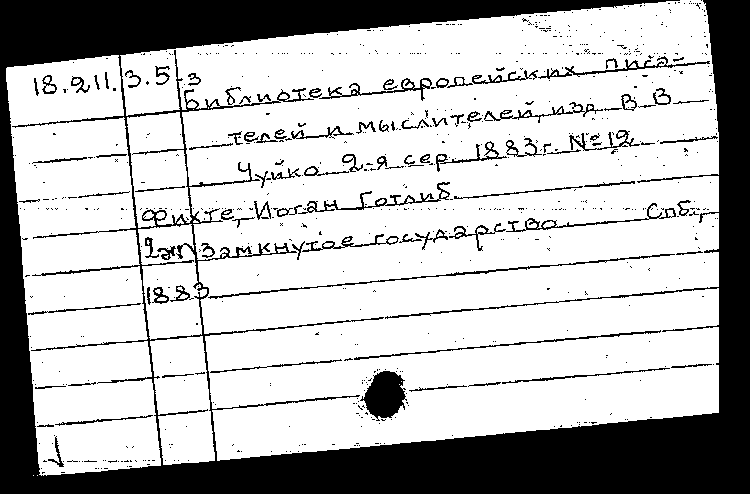 18.211.3.5-3
Библиотека европейских писа-
телей и мыслителей, изд. В. В.
Чуйко. 2-я сер. 1883г. №12
Фихте, Иоган Готлиб.
2эк Замкнутое государство. Спб.,
1883